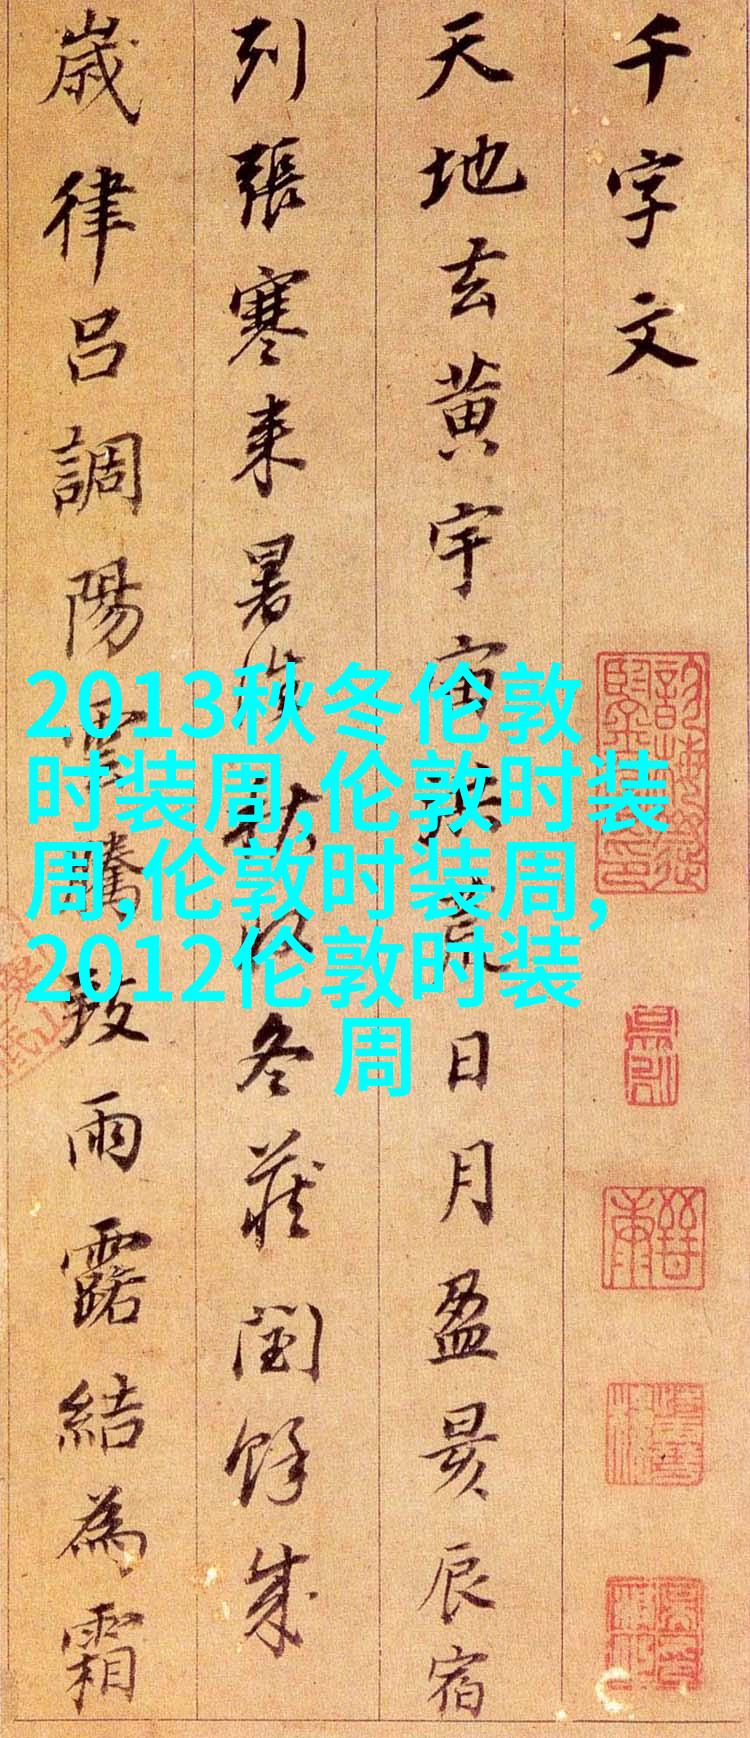 千字文
天地玄黄宇宙洪荒日月盈昃辰宿
列張寒来暑往秋收冬蔵閏餘成
歳律呂調陽雲騰致雨露結為霜
2013秋冬伦敦
时装周,伦敦时装
周,伦敦时装周,
2012伦敦时装
周